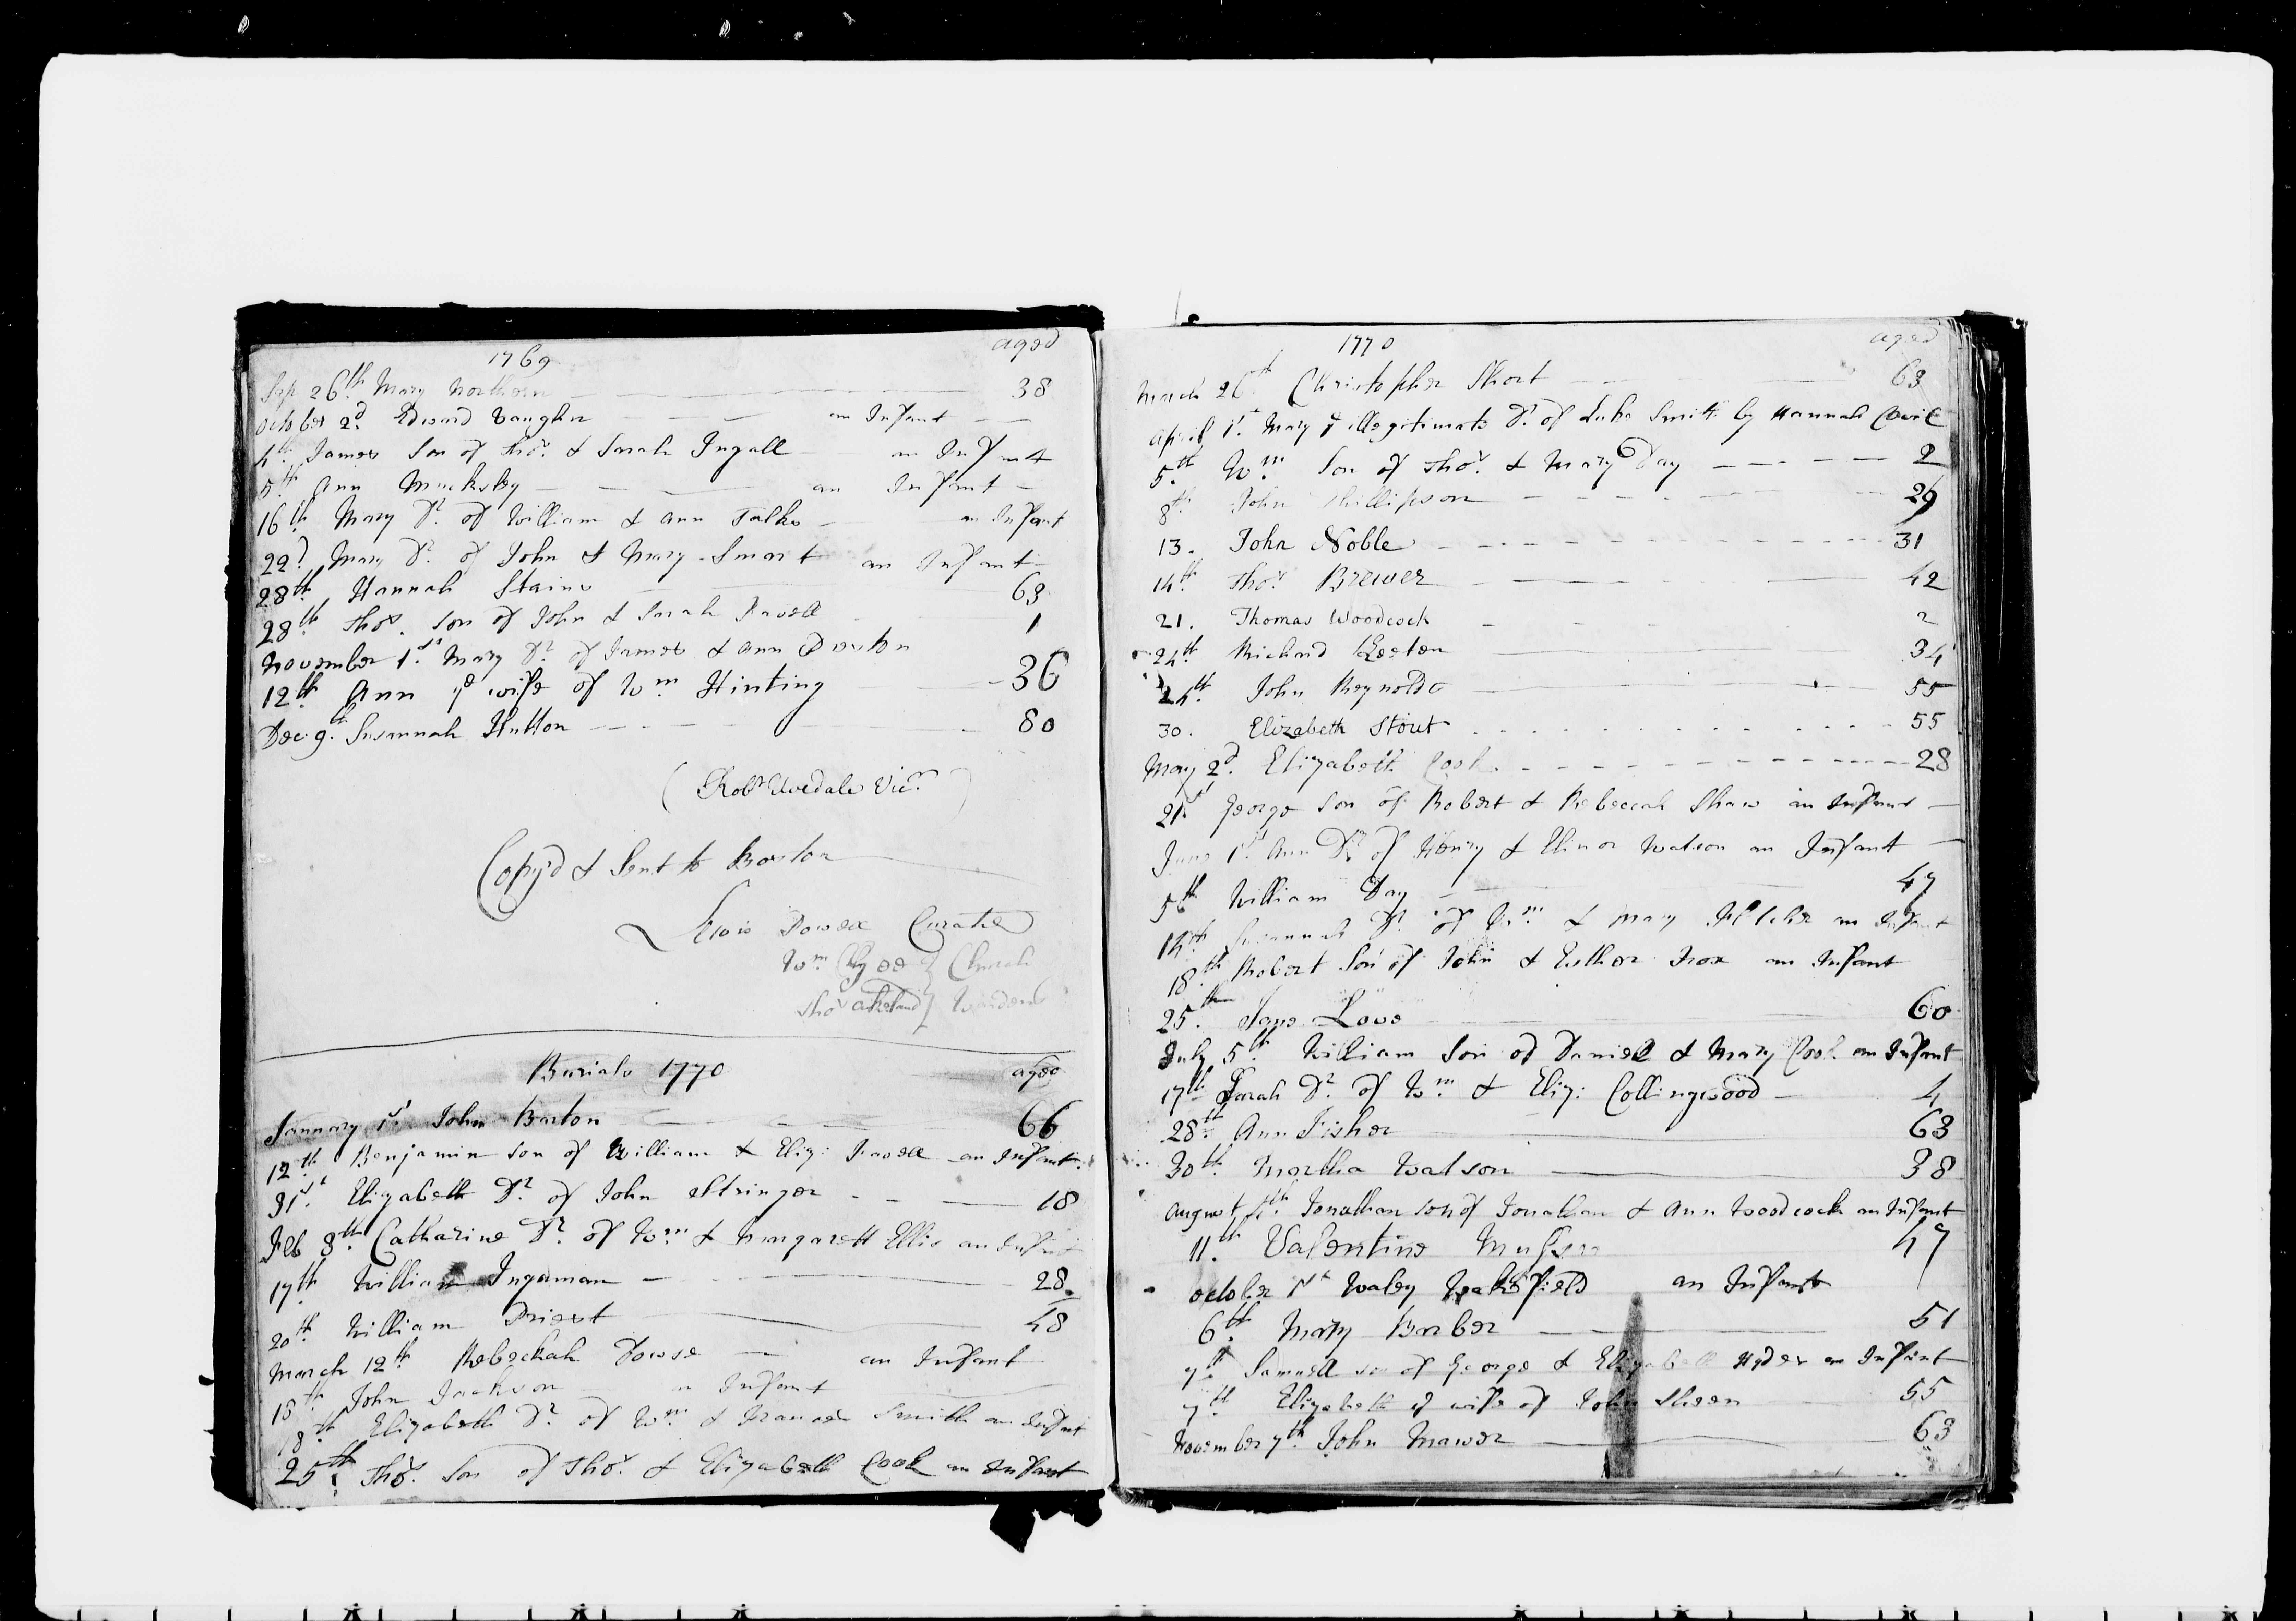 1769 aged
Sep 26th. Mary Northorn 38
October 2d. Edward Vaughn an Infant
4th. James Son of Thos. & Sarah Ingall an Infant
5th. Ann Mucksby an Infant
16th Mary Dr. of William & Ann Talks an Infant
22d Mary Dr. of John & Mary Smart an Infant
28th Hannah Stains 63
28th Thos. Son of John & Sarah Favell 1
November 1st. Mary Dr. of James & Ann
12th Ann ye wife of Wm. Hinting 36
Dec 9th. Susannah Hutton 80
(Robt Uvedale Vic.r)
Copy'd & Sent to Boston
Lewis Dowse Curate
Wm. Church
Thos Wardens
Burials 1770 aged
January 1st. John Barton 66
12th Benjamin son of William & Eliz: Favell an Infant
31st. Elizabeth Dr. of John Stringer 18
Feb 8th. Catharine Dr. of Wm. & Margarett Ellis an Infant
17th William Ingaman 28
20th William Priest 48
March 12th Rebeckah Dowse an Infant
18th John Jackson an Infant
18th Elizabeth Dr. of Wm. & Frances Smith an Infant
25th. Thos. Son of Thos. & Elizabeth Cook an Infant
1770 aged
March 26th Christopher Short 63
April 1st. Mary ye illegitimate Dr. of Luke Smith by Hannah
5th. Wm. Son of Thos. & Mary Day 2
8th. John Phillipson 29
13. John Noble 31
14th. Thos. Brewer 42
21. Thomas Woodcock 2
24th. Richard Keeton 34
24th. John Reynolds 55
30. Elizabeth Stout 55
May 2d. Elizabeth Cook 28
21st George Son of Robert & Rebeccah Shaw an Infant
June 1st. Ann Dr. of Henry & Elinor Watson an Infant
5th William Day 47
14th. Susannah Dr. of Wm. & Mary an Infant
18th. Robert Son of John & Esther an Infant
25th. Jane Love 60
July 5th. William Son of Daniel & Mary Cook an Infant
17th. Sarah Dr. of Wm. & Eliz: Collingwood 4
28th. Ann Fisher 63
30th. Martha Watson 38
August 4th. Jonathan son of Jonathan & Ann Woodcock an Infant
11th. Valentine 47
October 1st Waley Wakefield an Infant
6th. Mary Barber 51
7th. Samuell son of George & Elizabeth Hyder an Infant
7th. Elizabeth ye wife of John Sheen 55
November 7th. John Mawer 63